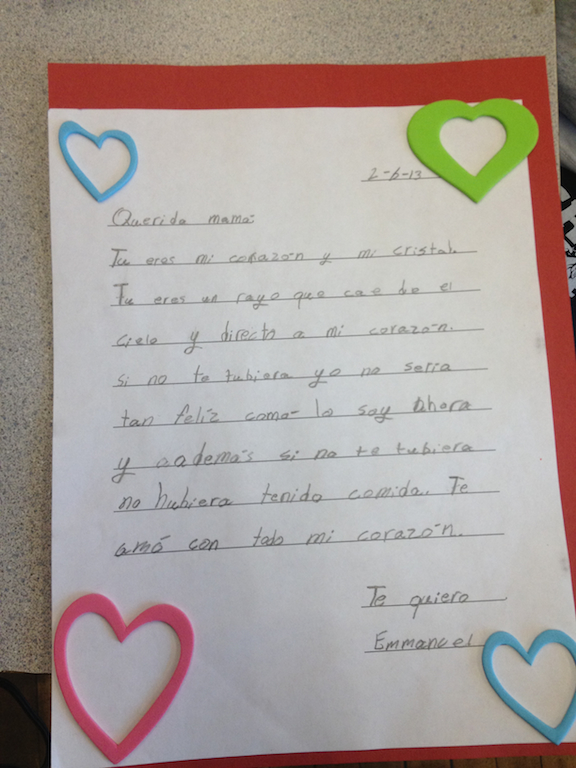 2-6-13
Querida mamá:
Tu eres mi corazón y mi cristal.
Tu eres un rayo que cae de el
cielo y directo a mi corazón.
si no te tubiera yo no seria
tan feliz como lo soy Ahora
y aademás si no te tubiera
no hubiera tenido comida. Te
amó con todo mi corazón.
Te quiero
Emmanuel